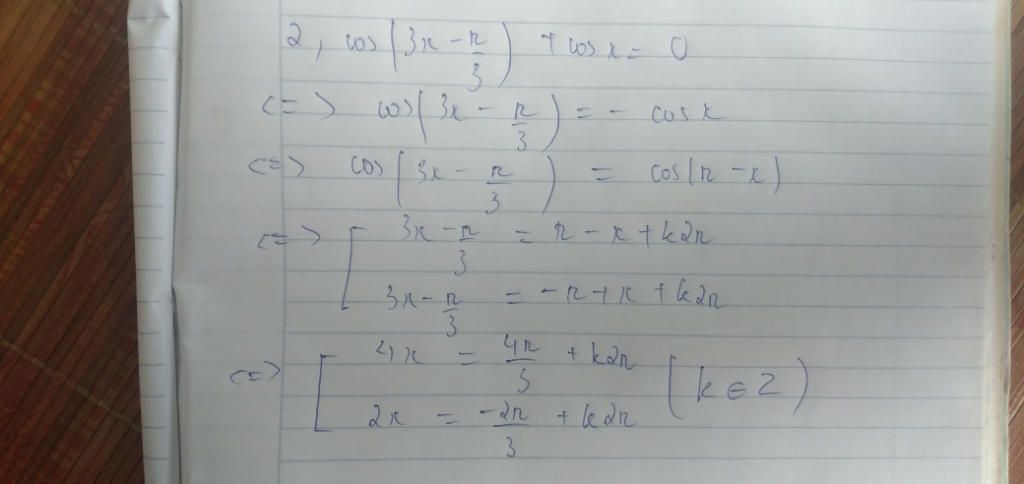 2, cos(3x - π/3) + cos x = 0
<=> cos(3x - π/3) = - cos x
<=> cos(3x - π/3) = cos(π - x)
<=> [ 3x - π/3 = π - x + k2π
3x - π/3 = -π + x + k2π
<=> [ 4x = 4π/3 + k2π (k ∈ Z)
2x = -2π/3 + k2π